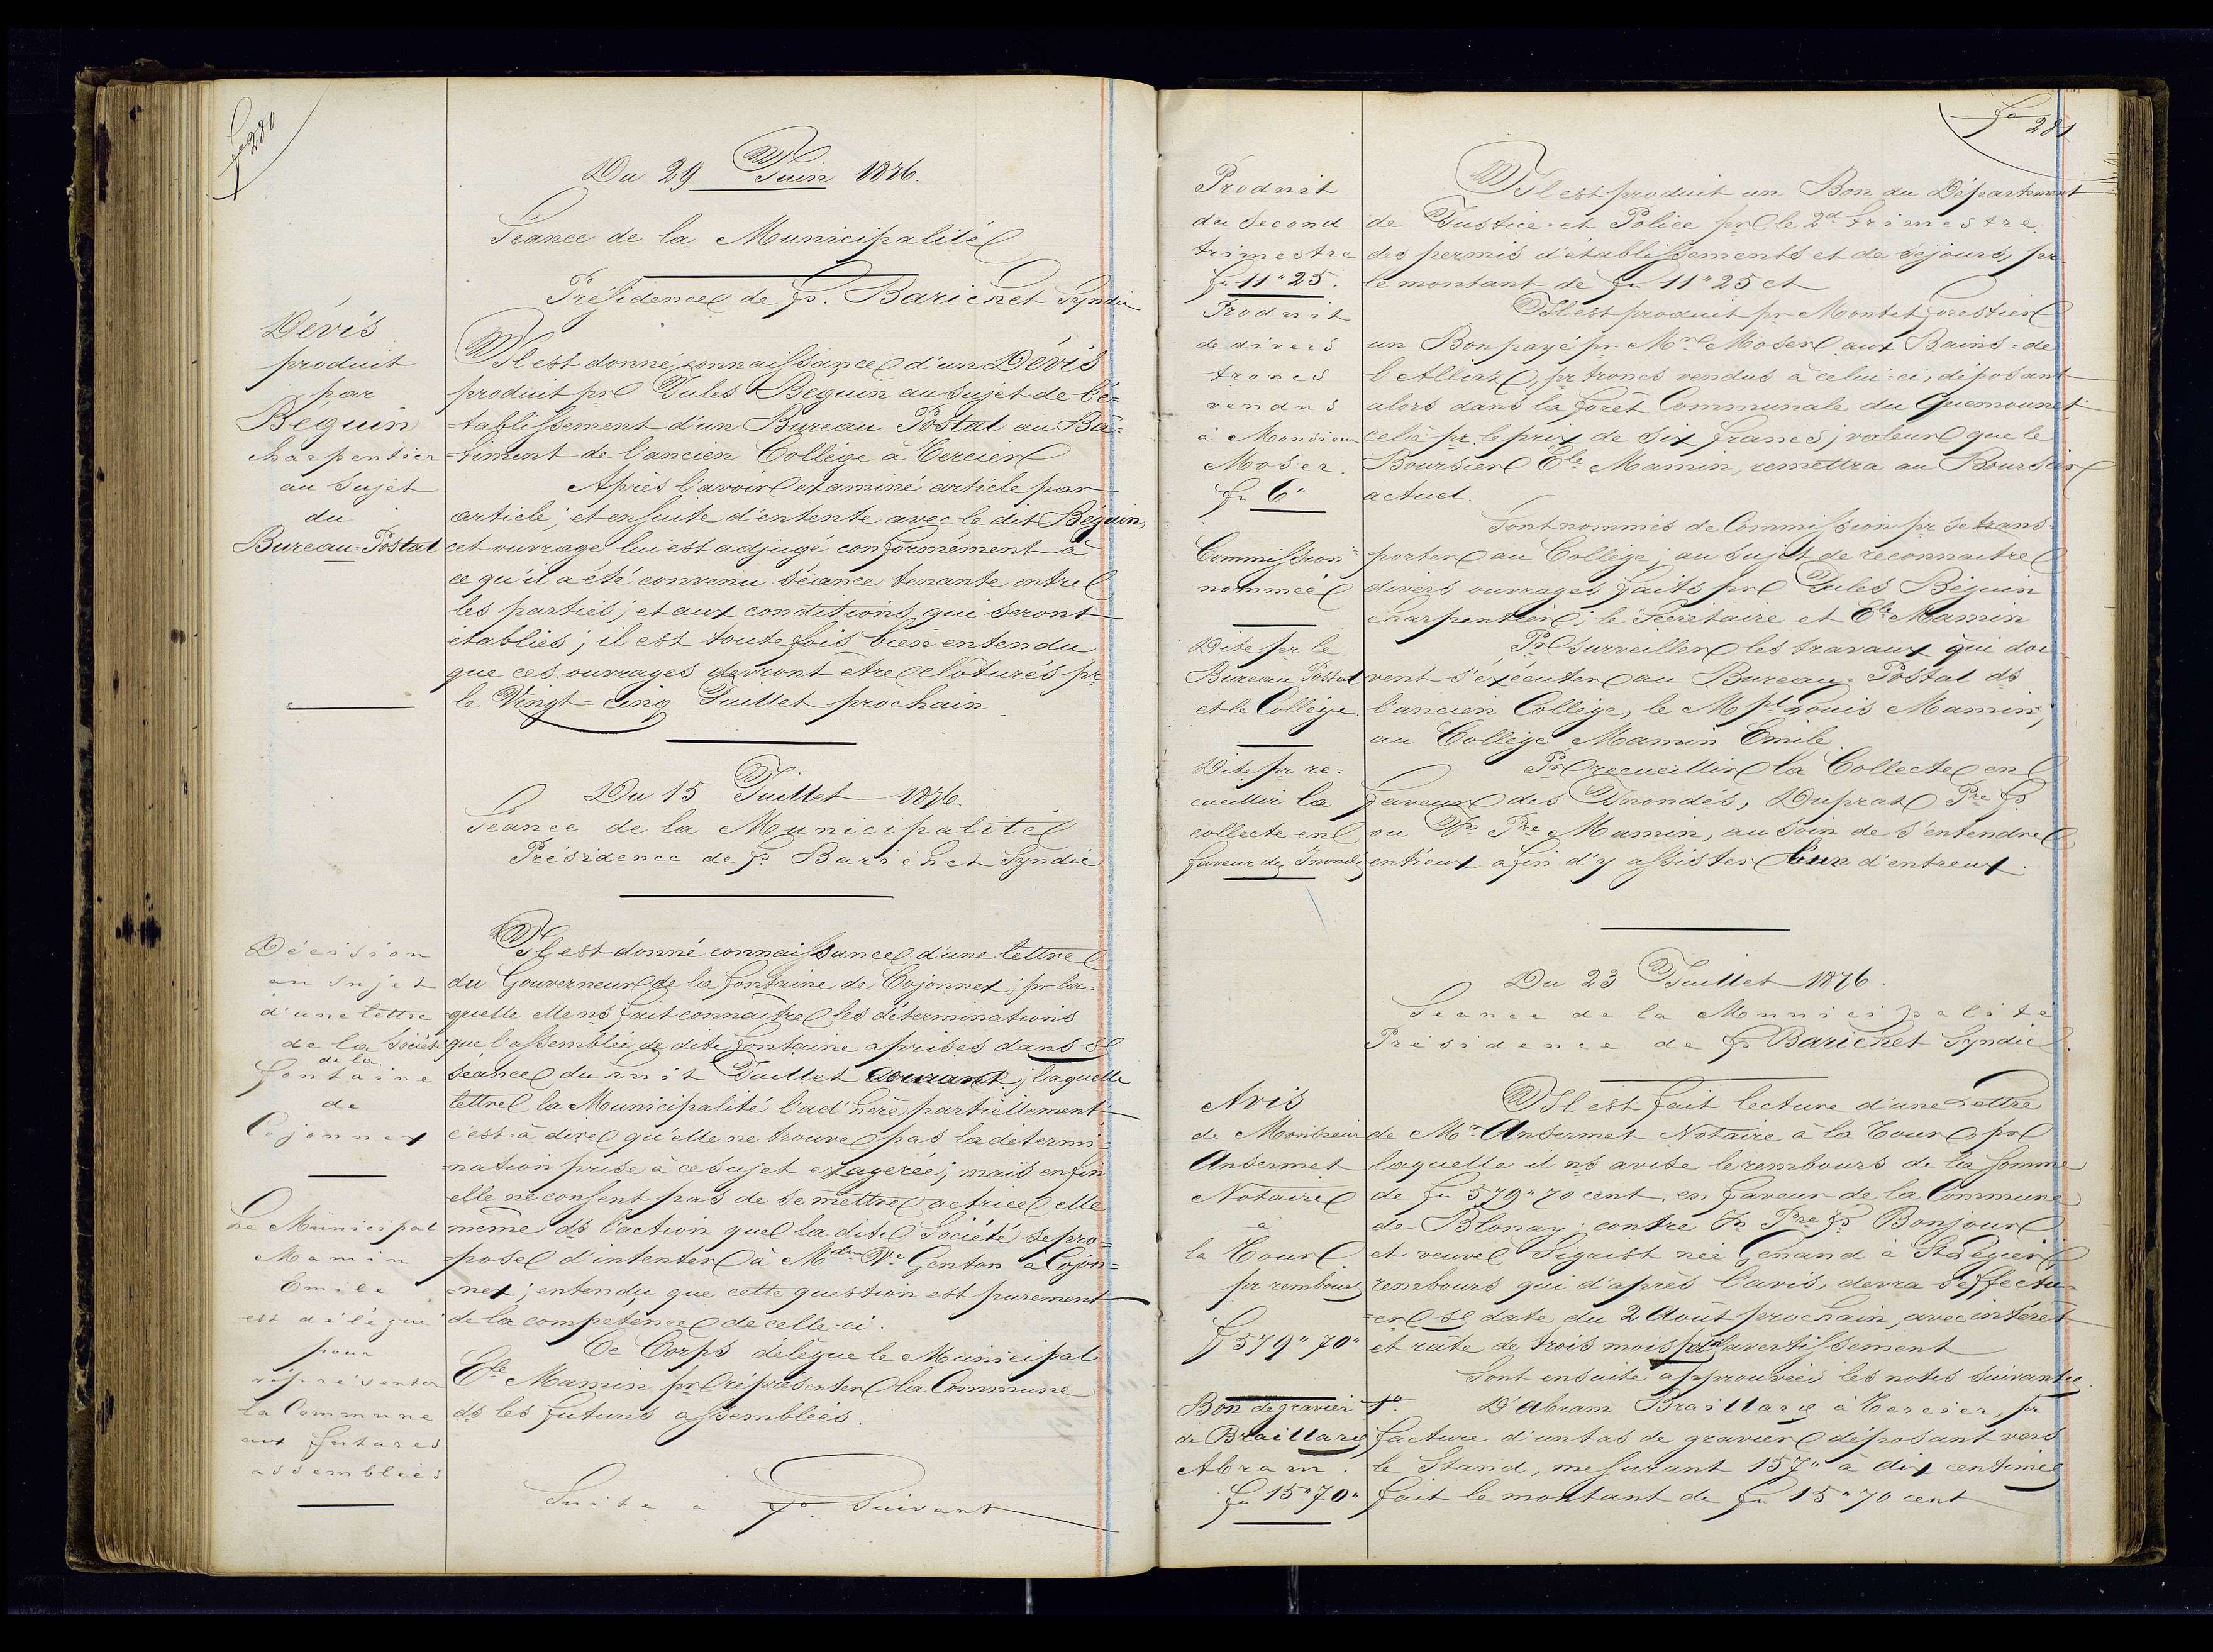 fo 280
Du 29 Juin 1876.
Séance de la Municipalité
Présidence de fs. Barichet Syndic
Dévis
produit
par
Béguin
charpentier
au sujet
du
Bureau-Postal
Il est donné connaissance d'un Dévis
produit pr Jules Béguin au sujet de l'é=
=tablissement d'un Bureau Postal au Bâ=
=timent de l'ancien Collège à Tercier
Après l'avoir examiné article par
article; et ensuite d'entente avec le dit Béguin,
cet ouvrage lui est adjugé conformément à
ce qu'il a été convenu séance tenante entre
les parties; et aux conditions qui seront
établies; il est toute fois bien entendu
que ces ouvrages devront etre clôturés pr
le Vingt=cinq Juillet prochain
Du 15 Juillet 1876.
Séance de la Municipalité
Présidence de fs Barichet Syndic
Décision
au sujet
d'une lettre
de la Société
de la
fontaine
de
Cojonnex
Il est donné connaissance d'une lettre
du Gouverneur de la fontaine de Cojonnex; pr la=
=quelle elle ns fait connaître les déterminations
que l'assemblée de dite fontaine a prises dans sa
séance du huit Juillet courant; laquelle
lettre la Municipalité l'ad'hère partiellement
c'est-à dire qu'elle ne trouve pas la détermi=
=nation prise à ce sujet exagerée; mais enfin
elle ne consent pas de se mettre actrice elle
même ds l'action que la dite Société se pro=
=pose d'intenter à Mdme Ve Genton à Cojon=
=nex; entendu que cette question est purement
de la competence de celle-ci.
Le Municipal
Mamin
Emile
est délégué
pour
représenter
la Commune
aux futures
assemblées
Ce Corps délègue le Municipal
Ele Mamin pr réprésenter la Commune
ds les futures assemblées.
Suite à fo Suivant
fo 281
Produit
du second
trimestre
fr 11"25.
Il est produit un Bon du Département
de Justice et Police pr le 2d trimestre
des permis d'établissements et de séjours, pr
le montant de fr 11"25 ct
Produit
de divers
troncs
vendus
à Monsieur
Moser.
fr 6"
Il est produit pr Montet forestier
un Bon payé pr Mr Moser aux Bains-de
l'Alliaz, pr troncs vendus à celui-ci, déposant
alors dans la forêt Communale du Guemounet
celà pr le prix de six francs; valeur que le
Boursier Ele Mamin, remettra au Boursier
actuel.
Commission
nommée
Sont nommés de Commission pr se trans=
porter au Collège; au sujet de reconnaitre
divers ouvrages faits pr Jules Béguin
charpentier; le Secrétaire et Ele Mamin
Dite pr le
Bureau Postal
et le Collège.
Pr surveiller les travaux qui doi
vent s'éxécuter au Bureau-Postal ds
l'ancien Collège, le Mpl Louis Mamin;
au Collège Mamin Emile.
Dite pr re=
cueillir la
collecte en
faveur des Inondés
Pr recueillir la Collecte en
faveur des Inondés, Dupraz Pre fs
ou Jn Pre Mamin, au soin de s'entendre
entr'eux afin d'y assister l'un d'entreux.
Du 23 Juillet 1876.
Séance de la Municipalité
Présidence de fs Barichet Syndic.
Avis
de Monsieur
Ansermet
Notaire
à
la Tour
pr rembours
fr 579"70"
Il est fait lecture d'une Lettre
de Mr Ansermet Notaire à la Tour, pr
laquelle il ns avise le rembours de la somme
de fr 579"70 cent. en faveur de la Commune
de Blonay; contre Jn Pre fs Bonjour
et veuve Sigrist née Genand à St Légier,
rembours qui d'après l'avis, devra s'effectu=
=er sa date du 2 Août prochain, avec intérêt
et râte de trois mois pr avertissement
Sont ensuite approuvées les notes suivantes.
Bon de gravier
de Braillard
Abram.
fr 15"70"
1o D'Abram Braillard à Tercier, pr
facture d'un tas de gravier déposant vers
le Stand, mesurant 157" à dix centimes
fait le montant de fr 15"70 cent